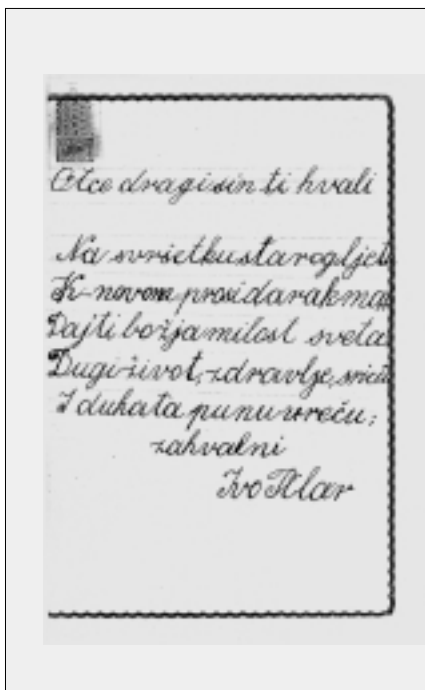 Otce dragi sin ti hvali
Na svršetku starog ljeta
K novom prosi darak mali
Daj ti božja milost sveta
Dugi život, zdravlje, sreću
I duhata punu vreću;
zahvalni
Ivo Pilar